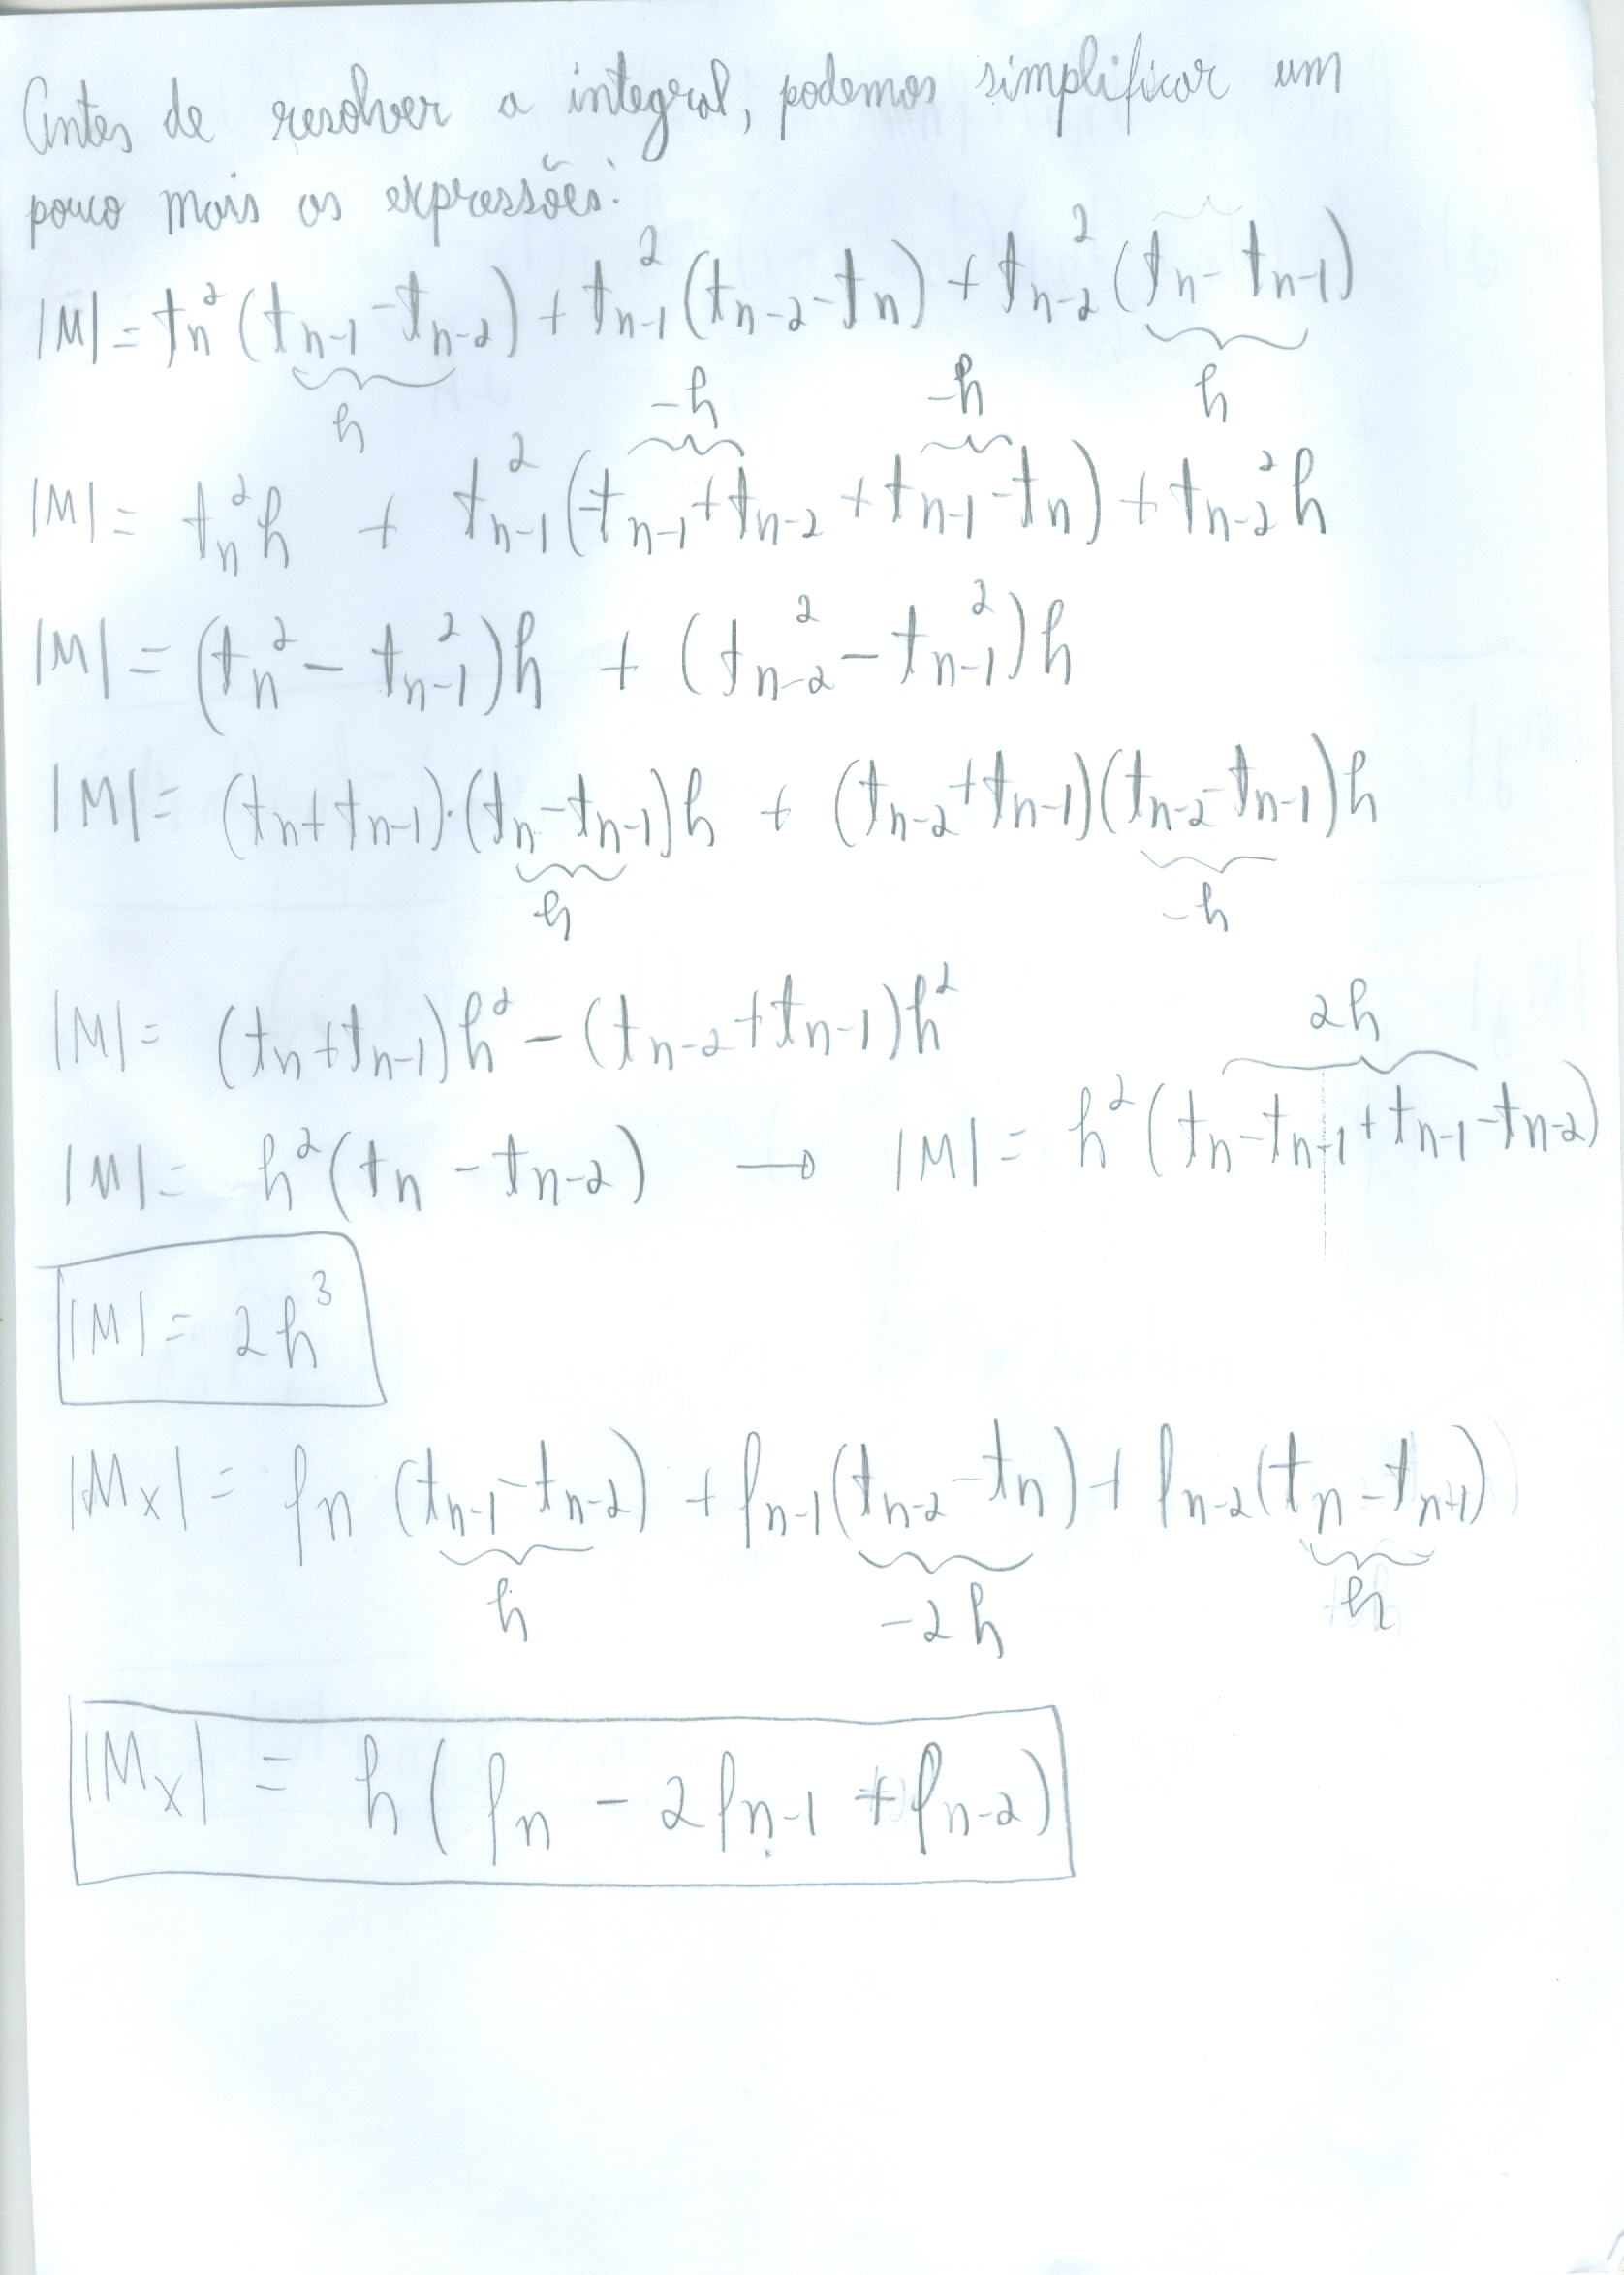 Antes de resolver a integral, podemos simplificar um
pouco mais as expressões:
|M| = tn² (tn-1 - tn-2) + tn-1² (tn-2 - tn) + tn-2² (tn - tn-1)
h -h -h h
|M| = tn² h + tn-1² (-tn-1 + tn-2 + tn-1 - tn) + tn-2² h
|M| = (tn² - tn-1²)h + (tn-2² - tn-1²)h
|M| = (tn + tn-1)·(tn - tn-1)h + (tn-2 + tn-1)(tn-2 - tn-1)h
h -h
|M| = (tn + tn-1)h² - (tn-2 + tn-1)h²
2h
|M| = h²(tn - tn-2) → |M| = h²(tn - tn-1 + tn-1 - tn-2)
|M| = 2h³
|Mx| = fn (tn-1 - tn-2) + fn-1(tn-2 - tn) + fn-2(tn - tn+1)
h -2h h
|Mx| = h(fn - 2fn-1 + fn-2)